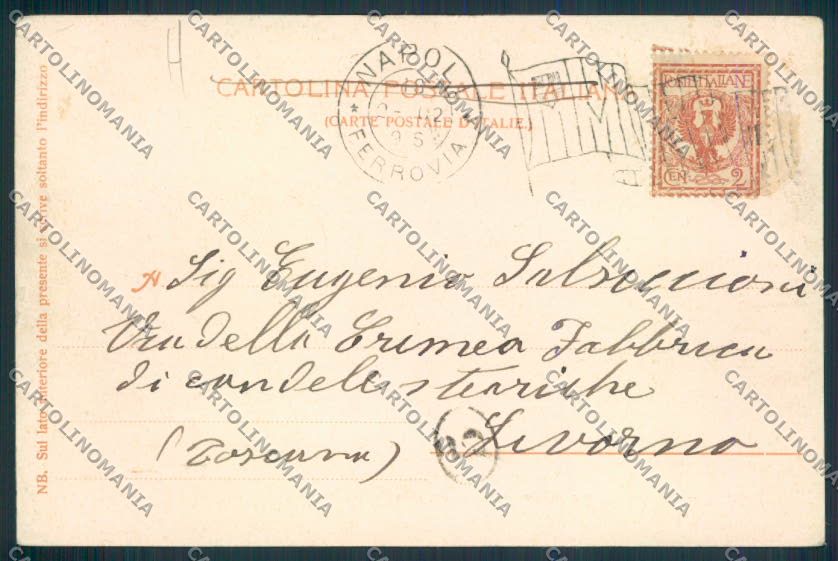 CARTOLINA POSTALE ITALIANA
(CARTE POSTALE D'ITALIE.)
NAPOLI
* FERROVIA *
POSTE ITALIANE
CEN. 2
A Sig Eugenio
Via della Crimea Fabbrica
di candele steariche
Livorno
(Toscana)
NB. Sul lato anteriore della presente si scrive soltanto l'indirizzo
CARTOLINOMANIA